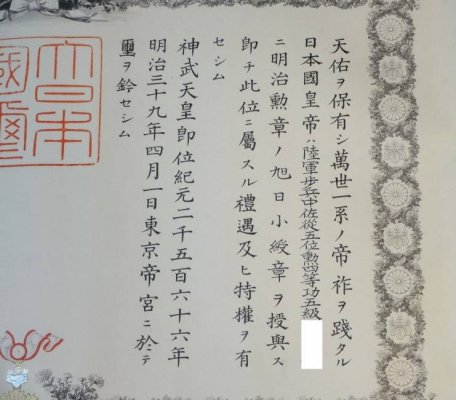 天佑ヲ保有シ萬世一系ノ帝祚ヲ踐タル
日本國皇帝ハ陸軍步兵中佐從五位勲四等功五級
ニ明治勲章ノ旭日小綬章ヲ授與ス
卽チ此位ニ屬スル禮遇及ヒ特權ヲ有
セシム
神武天皇卽位紀元二千五百六十六年
明治三十九年四月一日東京帝宮ニ於テ
璽ヲ鈐セシム
大日本
國璽